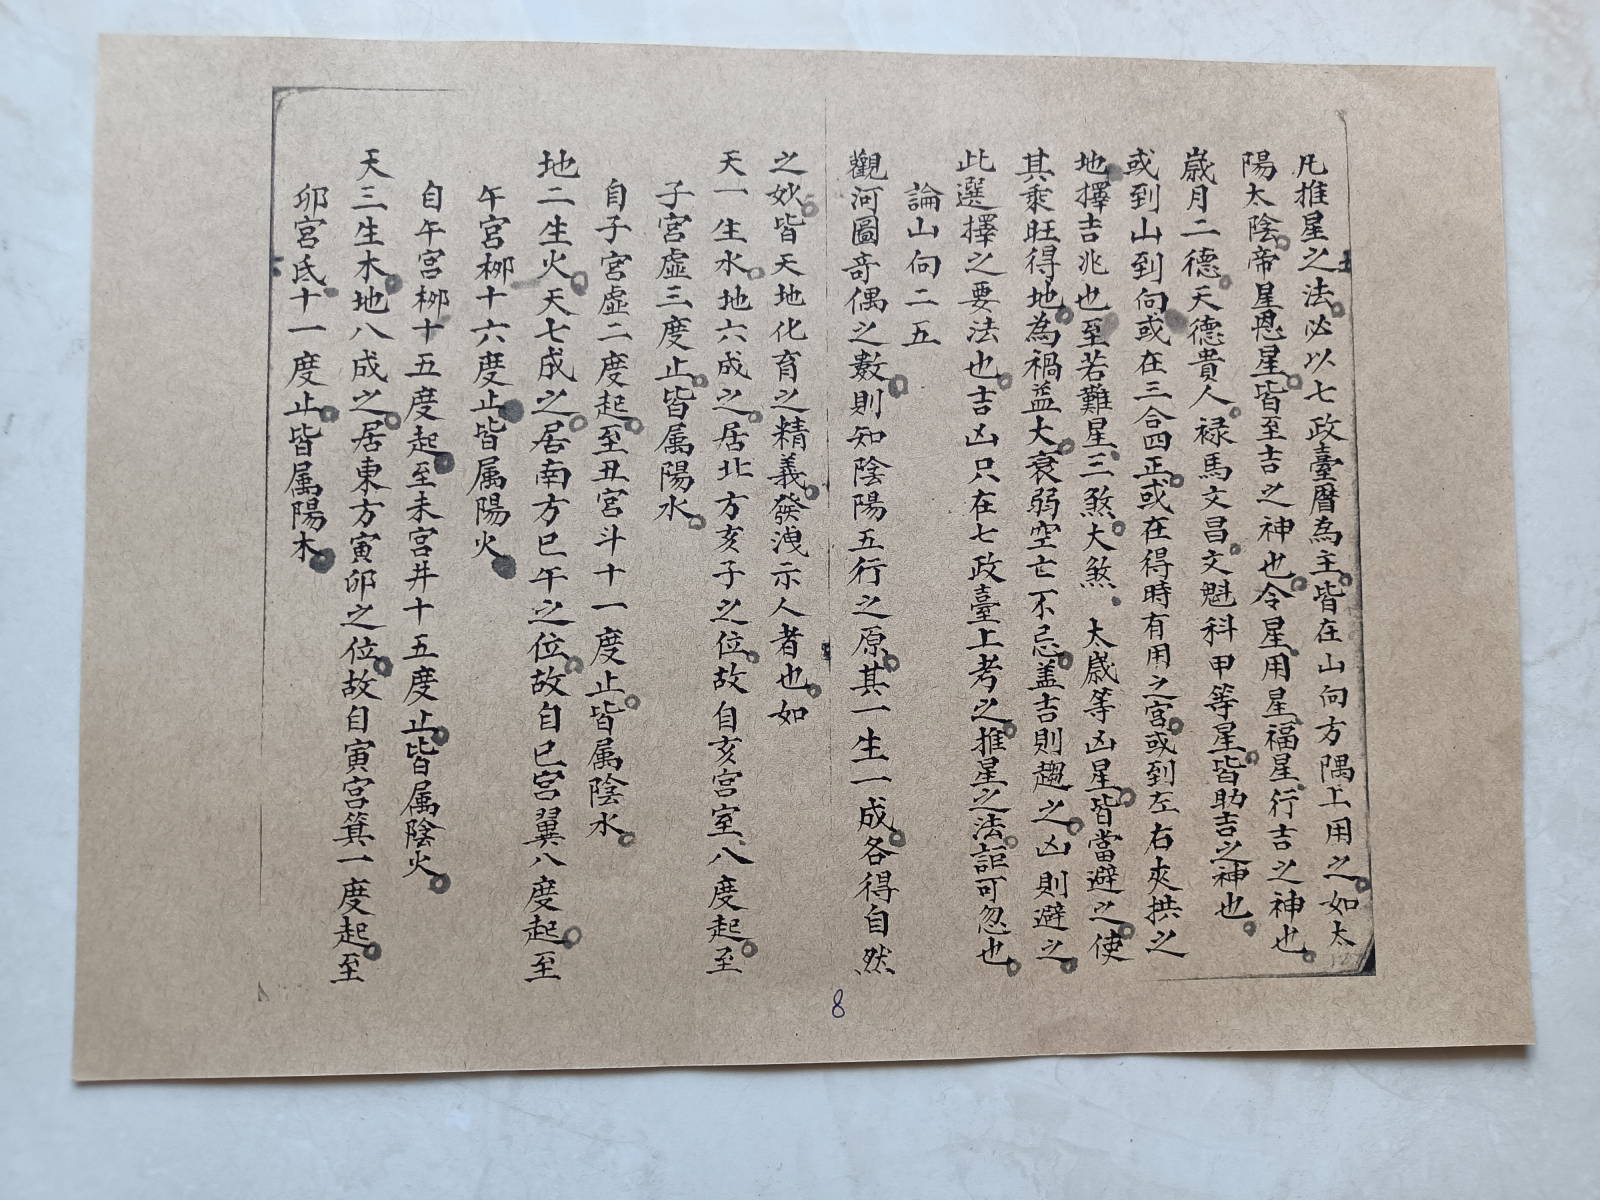 凡推星之法必以七政臺曆為主皆在山向方隅上用之如太
陽太陰帝星恩星皆至吉之神也令星用星福星行吉之神也
歲月二德天德貴人祿馬文昌文魁科甲等星皆助吉之神也
或到山到向或在三合四正或在得時有用之宮或到左右夾拱之
地擇吉兆也至若難星三煞大煞太歲等凶星皆當避之使
其乘旺得地為禍益大衰弱空亡不忌盖吉則趨之凶則避之
此選擇之要法也吉凶只在七政臺上考之推星之法詎可忽也
論山向二五
觀河圖奇偶之數則知陰陽五行之原其一生一成各得自然
之妙皆天地化育之精義發洩示人者也如
天一生水地六成之居北方亥子之位故自亥宮室八度起至
子宮虛三度止皆属陽水
自子宮虛二度起至丑宮斗十一度止皆属陰水
地二生火天七成之居南方巳午之位故自巳宮翼八度起至
午宮柳十六度止皆属陽火
自午宮柳十五度起至未宮井十五度止皆属陰火
天三生木地八成之居東方寅卯之位故自寅宮箕一度起至
卯宮氐十一度止皆属陽木
8